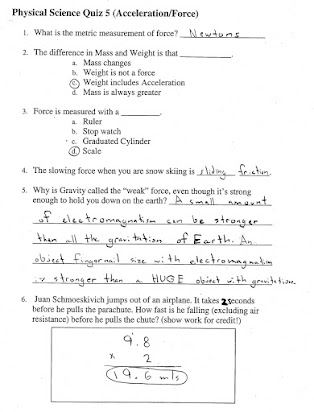 Physical Science Quiz 5 (Acceleration/Force)
1. What is the metric measurement of force? Newtons
2. The difference in Mass and Weight is that
a. Mass changes
b. Weight is not a force
c. Weight includes Acceleration
d. Mass is always greater
3. Force is measured with a
a. Ruler
b. Stop watch
c. Graduated Cylinder
d. Scale
4. The slowing force when you are snow skiing is sliding friction.
5. Why is Gravity called the "weak" force, even though it's strong
enough to hold you down on the earth? A small amount
of electromagnatism can be stronger
then all the gravitation of Earth. An
object fingernail size with electromagnatism
is stronger then a HUGE object with gravitation.
6. Juan Schmoeskivich jumps out of an airplane. It takes 2 seconds
before he pulls the parachute. How fast is he falling (excluding air
resistance) before he pulls the chute? (show work for credit!)
9.8
x 2
19.6 m/s